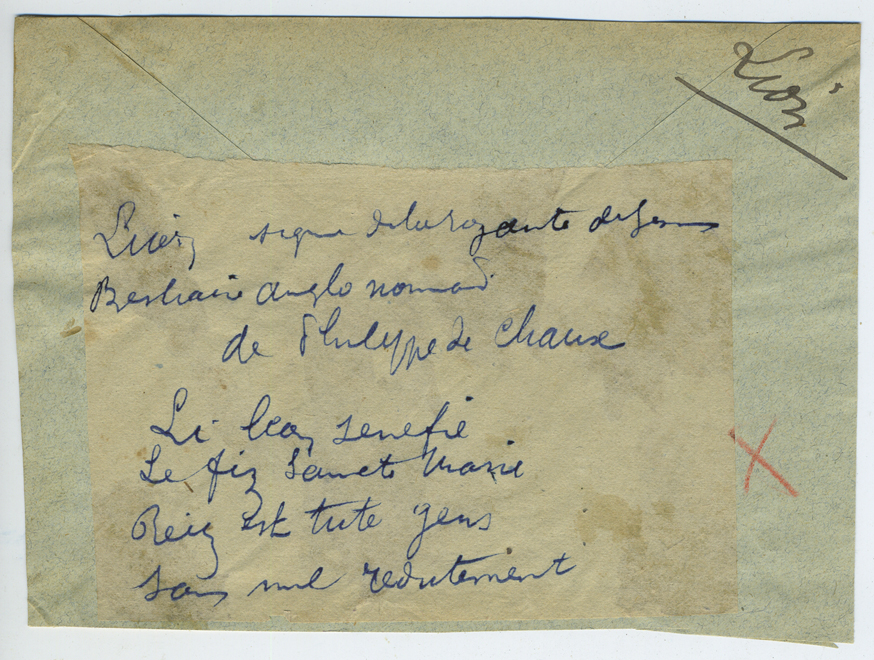 Lion
Lion signe de la royauté de Jesus
Bestiaire anglo normand
de Philippe de Chaux
Li leoz senefie
Le fiz Sancte Marie
Reiz est tute gens
Sans nul redutement